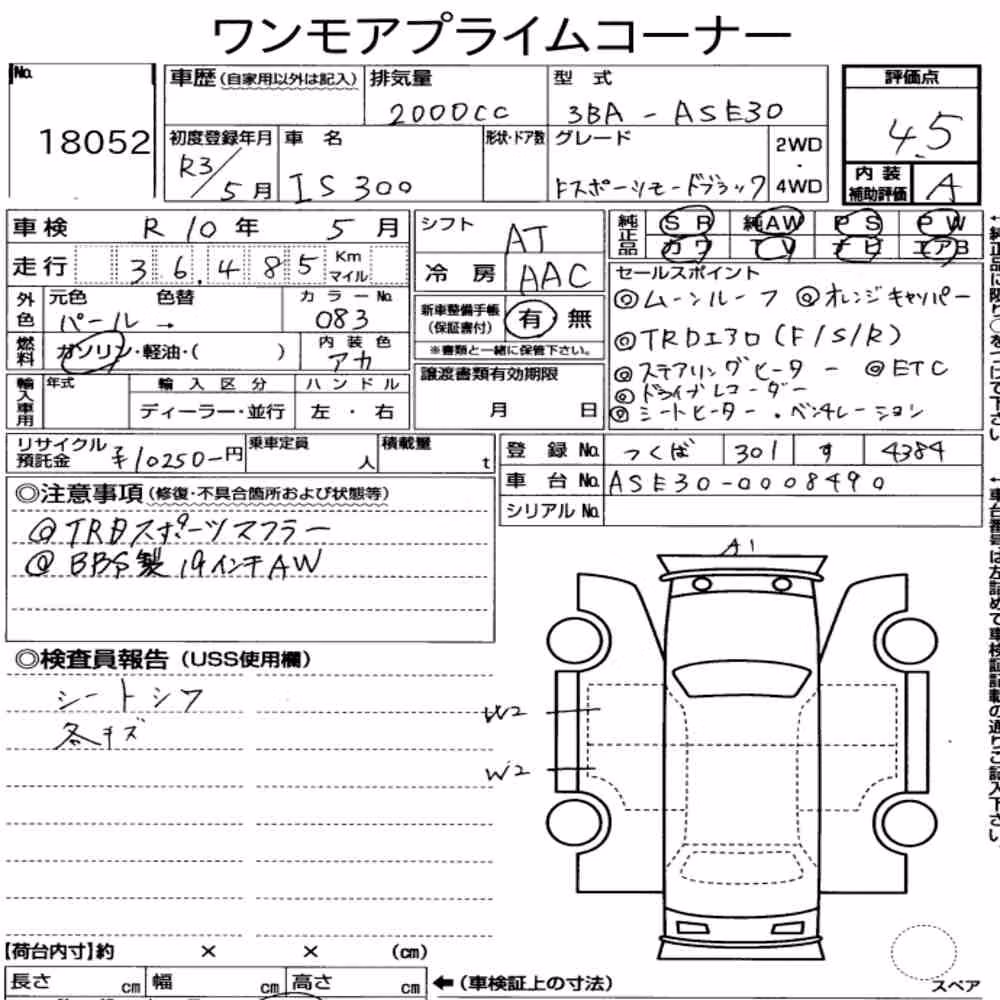 ワンモアプライムコーナー
No. 18052
車歴(自家用以外は記入) 排気量 2000cc 型 式 3BA - ASE30 評価点 4.5
初度登録年月 R3/5月 車 名 IS300 形状・ドア数 グレード Fスポーツモードブラック 2WD・4WD 内 装 補助評価 A
車検 R 10 年 5 月 シフト AT 純正品 SR 純AW PS PW
カワ TV ナビ エアB
走行 36,485 Km マイル 冷 房 AAC
外色 元色 パール 色替 → カラーNo. 083
燃料 ガソリン・軽油・( ) 内 装 色 アカ
新車整備手帳(保証書付) 有 無
※書類と一緒に保管下さい。
セールスポイント
◎ムーンルーフ ◎オレンジキャリパー
◎TRDエアロ(F/S/R)
◎ステアリングヒーター ◎ETC
◎ドライブレコーダー
◎シートヒーター・ベンチレーション
輸入車用 年式 輸 入 区 分 ハ ン ド ル
ディーラー・並行 左 ・ 右
譲渡書類有効期限
月 日
リサイクル預託金 ¥10250-円 乗車定員 人 積載量 t
登 録 No. つくば 301 す 4384
車 台 No. ASE30-0008490
シリアル No.
◎注意事項(修復・不具合箇所および状態等)
◎TRDスポーツマフラー
◎BBS製 19インチAW
◎検査員報告(USS使用欄)
シートシワ
各キズ
A1
W2
W2
【荷台内寸】約 × × (cm)
長さ cm 幅 cm 高さ cm ←(車検証上の寸法)
スペア
←純正品に限り○をつけて下さい。
←車台番号は左詰めで車検証記載の通りご記入下さい。